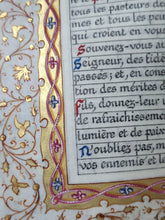 tous les pasteurs d
mes et tous les pau
qui croient en vous
Souvenez-vous
Seigneur, des fid
passés; et, en con
tion des mérites d
Fils, donnez-leur
de rafraîchissem
lumière et de paix
N'oubliez pas, m
vos ennemis et